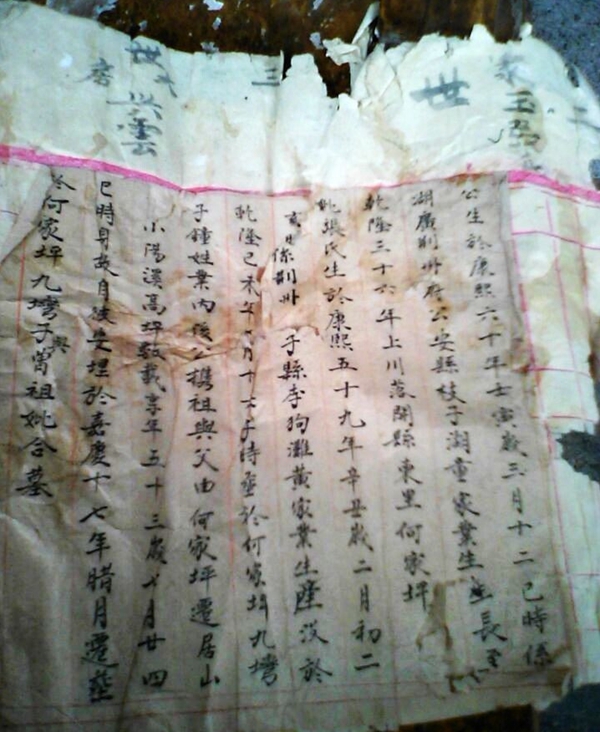 二
世
三
世
興雲
公生於康熙六十年壬寅歲三月十二巳時係
湖廣荆州府公安縣枝子湖童家業生長至
乾隆三十六年上川落開縣東里何家坪
妣張氏生於康熙五十九年辛丑歲二月初二
係荆州子縣李狗灘黃家業生產没於
乾隆己未年月十六子時塟於何家坪九塆
子鐘姓業内後公攜祖與父由何家坪遷居山
小陽溪高坪數載享年五十三歲七月廿四
巳時身故自後安埋於嘉慶十七年腊月遷塟
於何家坪九塆子與曾祖妣合墓